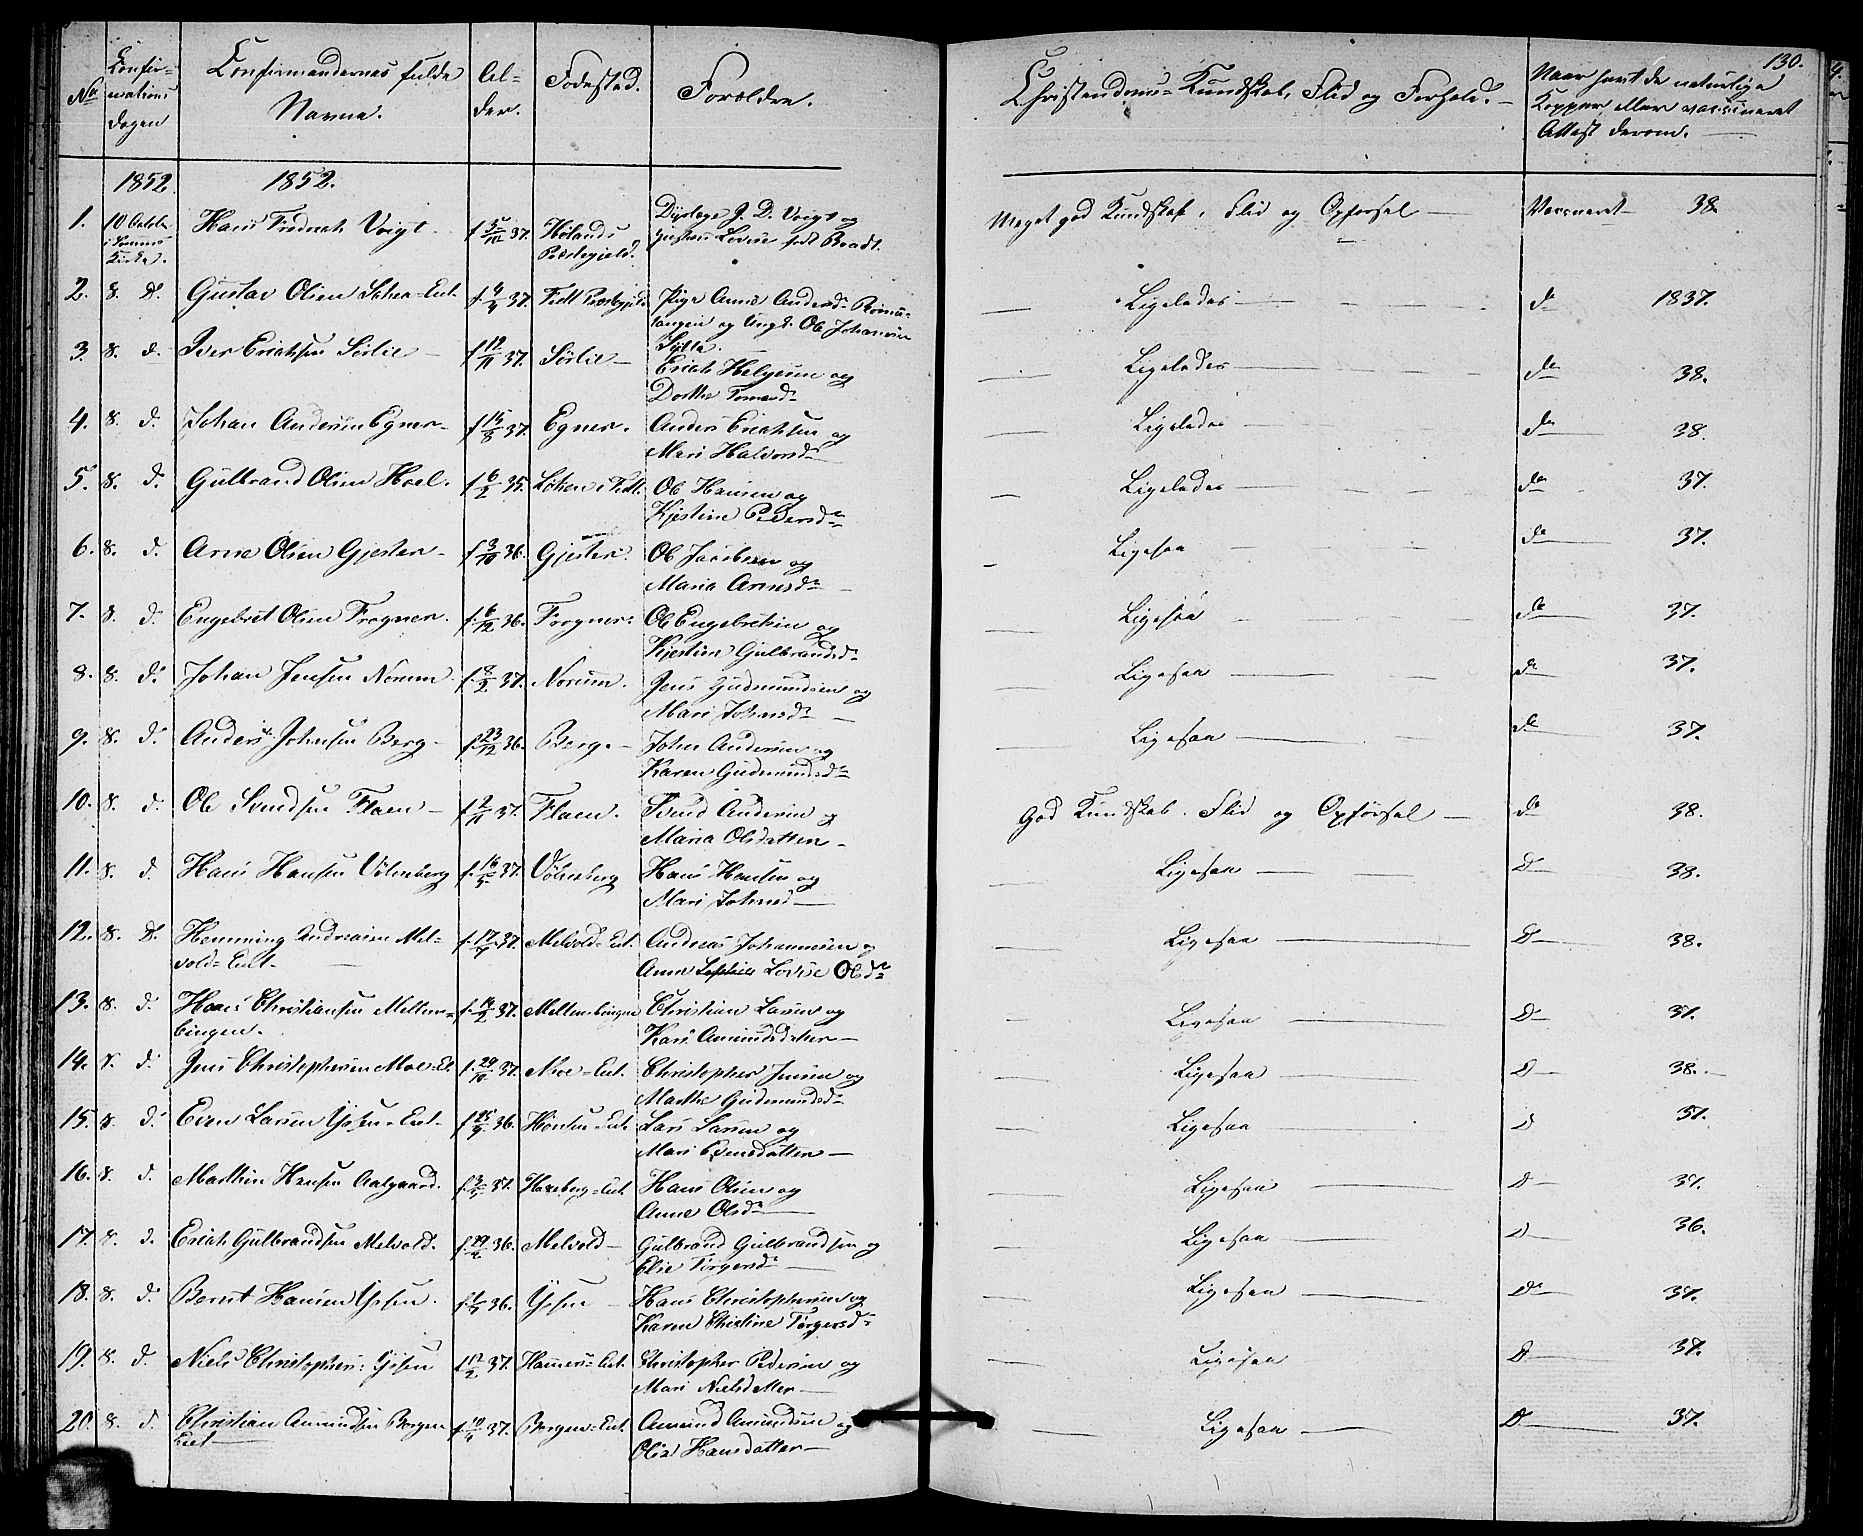 130.
No
Confir-
mations
dagen
Confirmandernes fulde
Navne.
Al-
der.
Fødested.
Forældre.
Christendoms-Kundskab, Flid og Forhold.
Naar havt de naturlige
Kopper, eller vaccineret
Attest derom.
1852. 1852.
1. 10 Octobr i Sømme Kirke. Hans Fredrik Voigt. f 5/12 37. Hølands Præstegjeld. J. D. Voigt og Lovise født Brandt. Meget god Kundskab, Flid og Opførsel Vaccineret 38.
2. 8. d. Gustav Olsen -Eiet. f. 4/4 37. Fedt Præstegjeld Pige Anne Andersd. og Ungk. Ole Johansen Ligeledes do 1837.
3. 8. d. Iver Erichsen Sørlie f 12/11 37. Sørlie Erich Helgesen og Dorthe Ligeledes do 38.
4. 8. d. Johan Andersen Egner f 15/8 37. Egner. Anders Erichsen og Mari Halvorsd. Ligeledes do 38.
5. 8. d. Gulbrand Olsen Hoel. f 6/2 35. Løken i Fedt. Ole Hansen og Kjestine Pedersd. Ligeledes do 37.
6. 8. d. Arne Olsen Gjester f 3/10 36. Gjester. Ole Jacobsen og Maria Arnesd. Ligesaa do 37.
7. 8. d. Engebret Olsen Frogner. f. 6/12 36. Frogner. Ole Engebretsen og Kjestine Gulbrandsd. Ligesaa do 37.
8. 8. d. Johan Jensen Norum f. 8/2 37. Norum. Jens Gudmundsen og Mari Johnsd. Ligesaa do 37.
9. 8. d. Anders Johnsen Berg f. 23/12 36. Berg John Andersen og Karen Gudmundsd. Ligesaa do 37.
10. 8. d. Ole Svendsen Flaen f 2/11 37. Flaen. Svend Andersen og Maria Olsdatter God Kundskab. Flid og Opførsel do 38.
11. 8. d. Hans Hansen Vølneberg f. 16/5 37. Vølneberg Hans Hansen og Mari Johnsd. Ligesaa D 38.
12. 8. d. Henning Andreasen Mel-
vold-Eiet. f. 17/ 37. Melvold-Eiet. Andreas Johannesen og Anne Sophie Lovise Olsd. Ligesaa D 38.
13. 8. d. Hans Christiansen Mellem-
bingen. f. 14/2 37. Mellembingen Christian Larsen og Kari Amundsdatter Ligesaa D 37.
14. 8. d. Jens Christophersen Moe-Et. f. 29/10 37. Moe-Eiet. Christopher Jensen og Marthe Gudmundsd. Ligesaa D 38.
15. 8. d. Even Larsen Ysen-Eiet f 25/9 36. Eiet Lars Larsen og Mari Evensdatter Ligesaa D 37.
16. 8. d. Mathin Hansen Aalgaard. f. 3/5 37. Haneborg-Eiet. Hans Olsen og Anne Olsd. Ligesaa D 37.
17. 8. d. Erich Gulbrandsen Melvold. f. 29/2 36. Melvold Gulbrand Gulbrandsen og Elie Torgersd. Ligesaa D 36.
18. 8. d. Bernt Hansen Ysen. 36. Ysen Hans Christophersen og Karen Christine Torgersd. Ligesaa D 37.
19. 8. d. Niels Christophers. Ysen f 12/2 37. Hammers-Eiet. Christopher Pedersen og Mari Nielsdatter Ligesaa D 37.
20. 8. d. Christian Amundsen Borgen
Eiet f. 10/4 37. Borgen-Eiet. Amund Amundsen og Olia Hansdatter Ligesaa D 37.